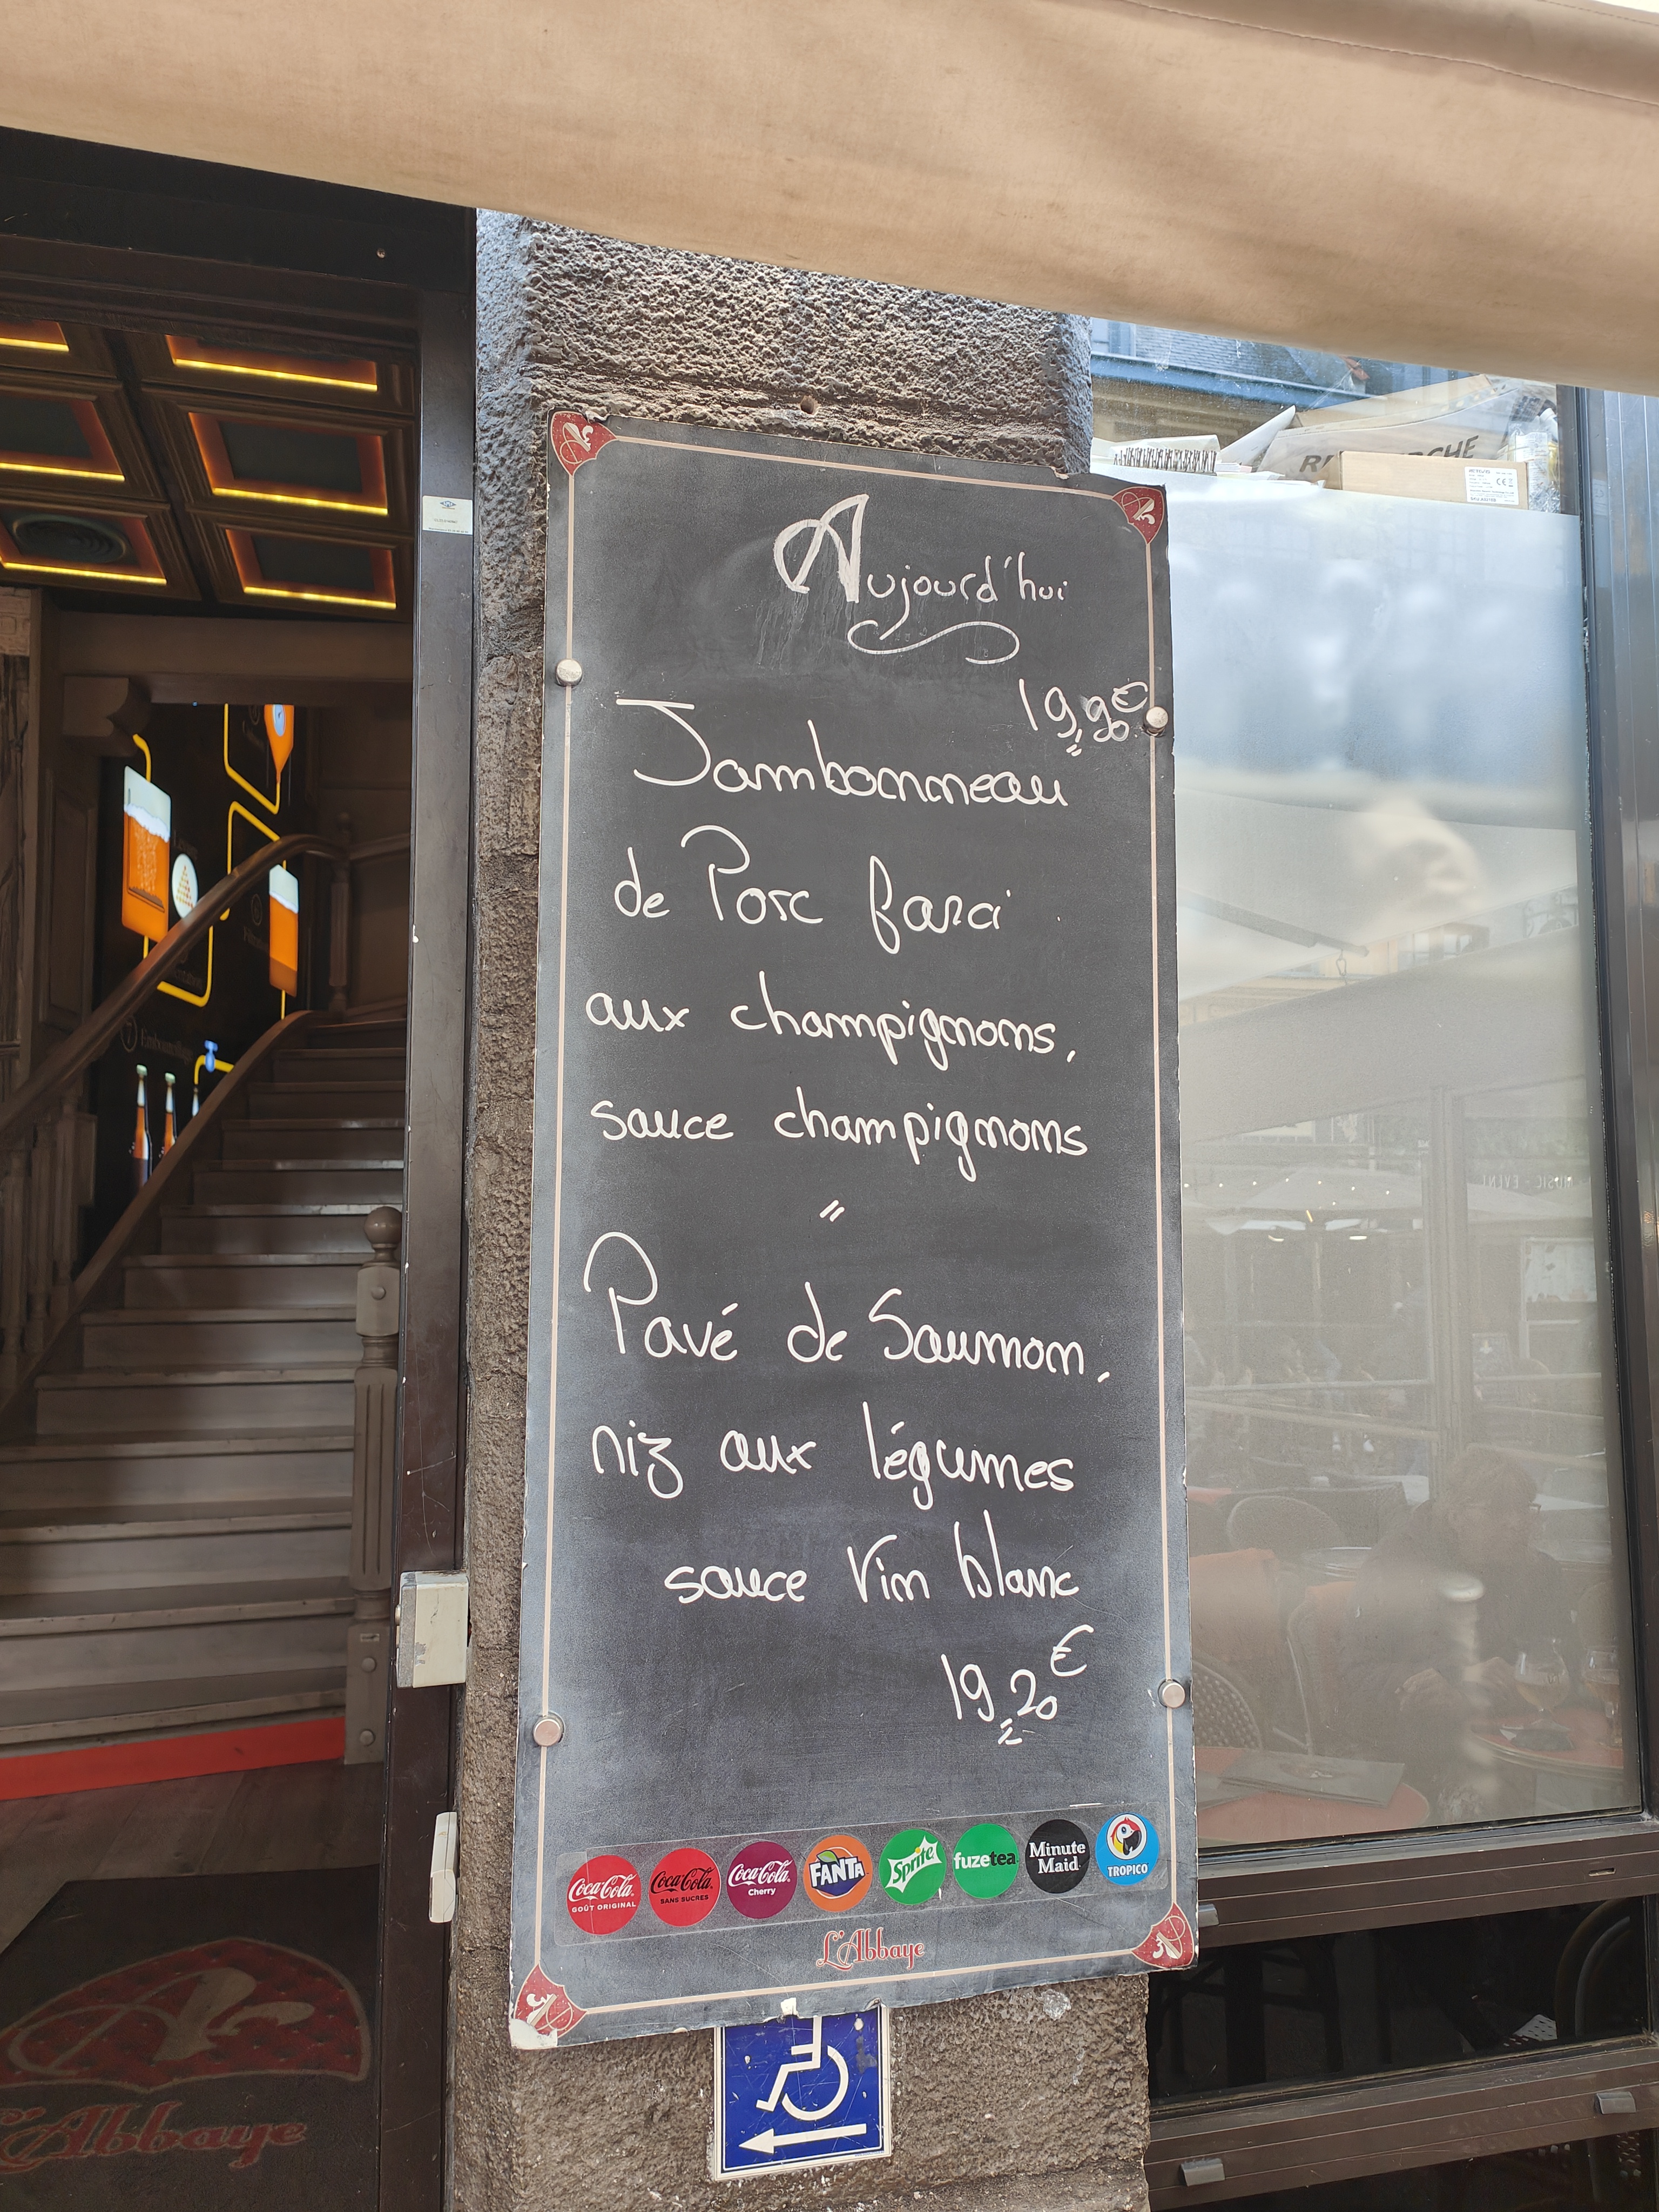 Aujourd'hui
19,90€
Jambonneau
de Porc farci
aux champignons,
sauce champignons
"
Pavé de Saumon,
riz aux légumes
sauce Vin blanc
19,20€
Coca-Cola GOÛT ORIGINAL
Coca-Cola SANS SUCRES
Coca-Cola Cherry
FANTA
Sprite
fuzetea
Minute Maid
TROPICO
L'Abbaye
L'Abbaye